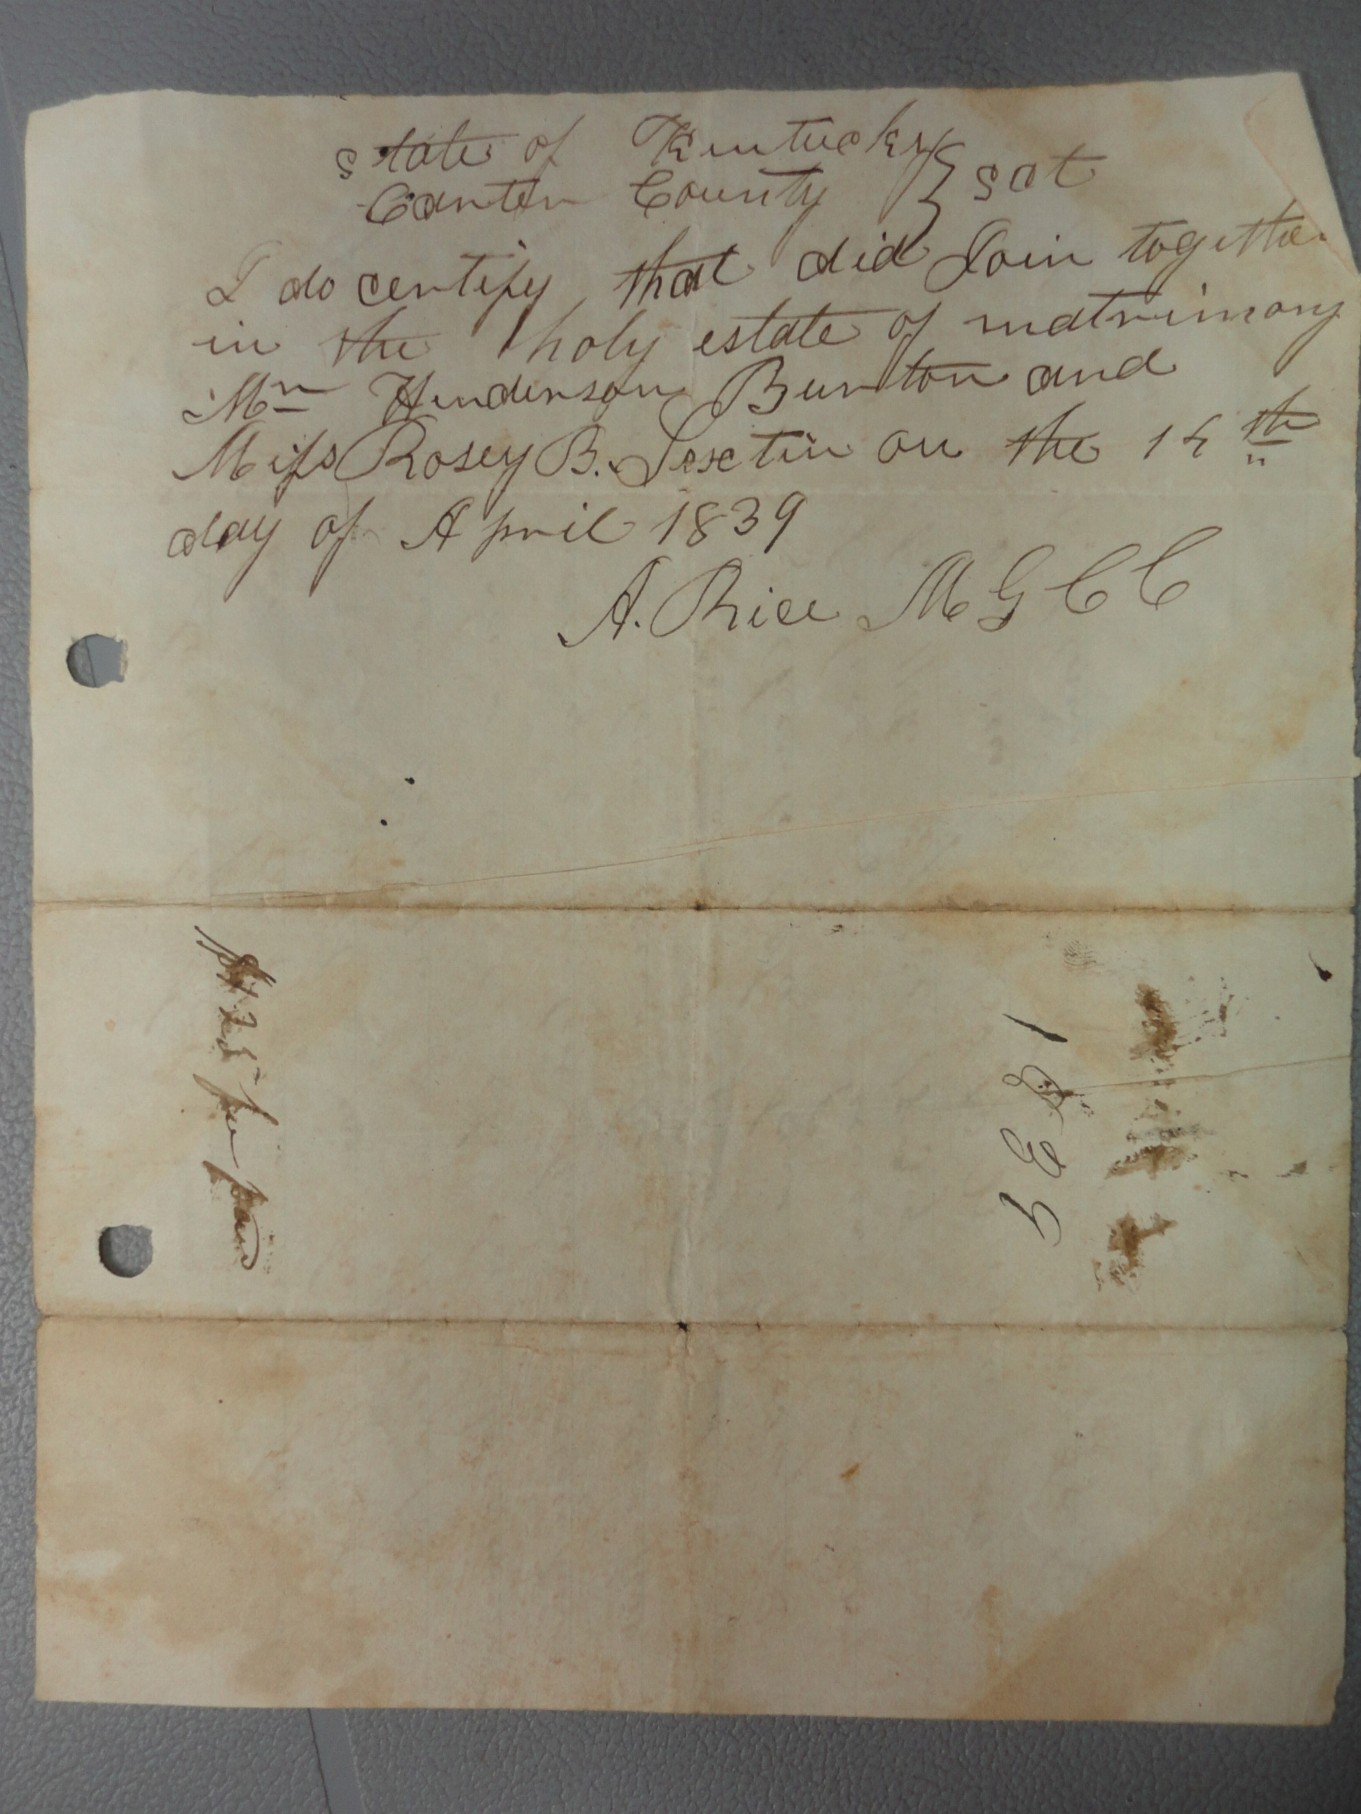 state of Kentucky } sct
Carter County
I do certify that did Join together
in the holy estate of matrimony
Mr Henderson Burton and
Miss Rosey B. Sexton on the
day of April 1839
A. Rice M G C C
fee paid
1839